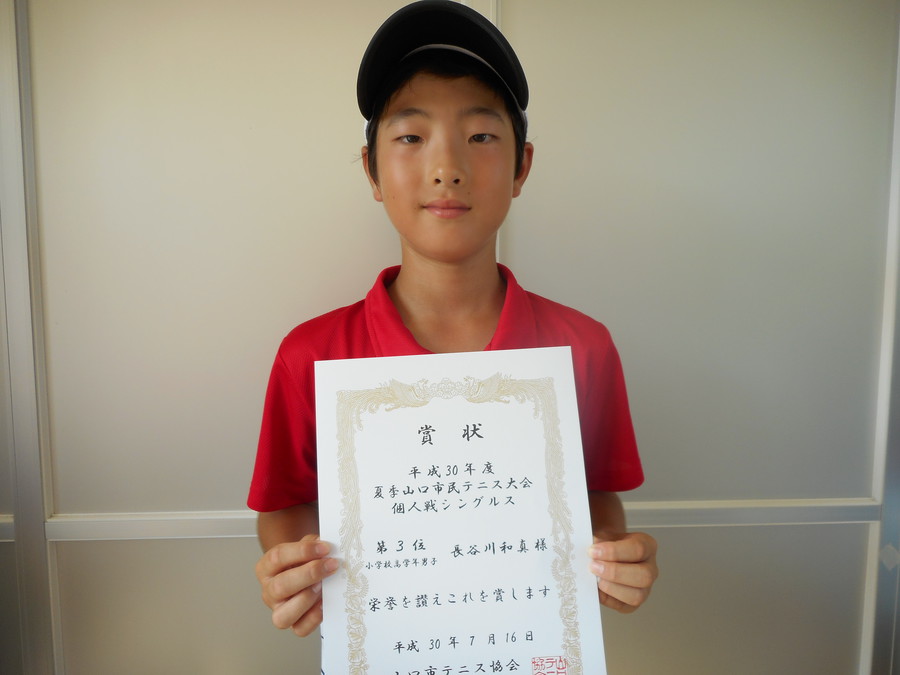 賞状
平成30年度
夏季山口市民テニス大会
個人戦シングルス
第3位 長谷川和真様
小学校高学年男子
栄誉を讃えこれを賞します
平成30年7月16日
山口市テニス協会